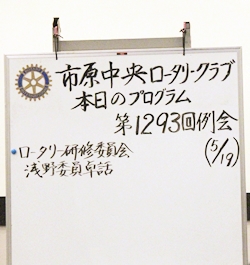 市原中央ロータリークラブ
本日のプログラム
第1293回例会
(5/19)
ロータリー研修委員会
浅野委員卓話